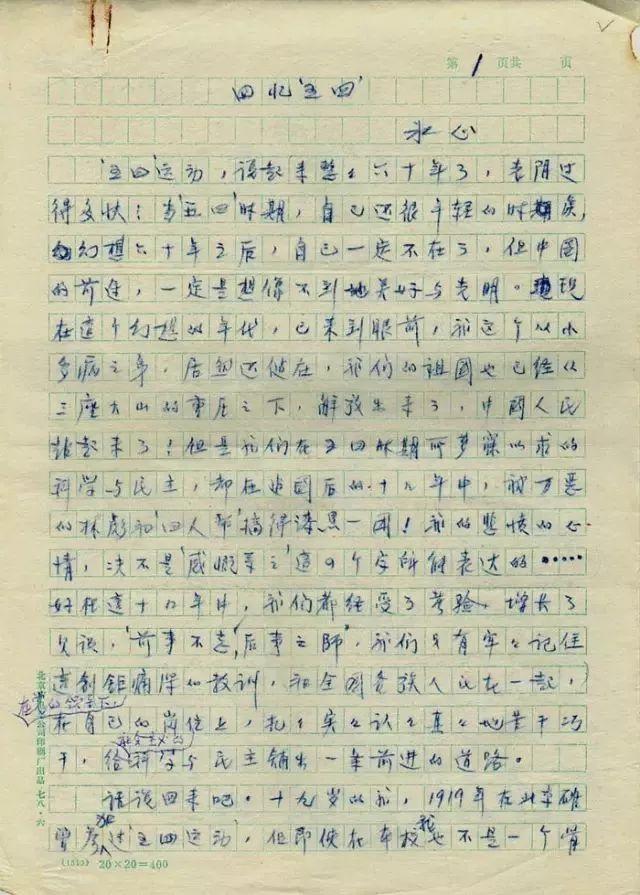 第1页共 页
回忆“五四”
冰心
“五四”运动，说起来整整六十年了，光阴过
得多快！当“五四”时期，自己还很年轻的时候，
幻想六十年之后，自己一定不在了，但中国
的前途，一定是想像不到地美好与光明。现
在这个幻想的年代，已来到眼前，我这个从小
多病之身，居然还健在，我们的祖國也已经从
三座大山的重压之下，解放出来了，中國人民
站起来了！但是我们在五四时期所梦寐以求的
科学与民主，却在建國后的十几年中，被万恶
的林彪和“四人帮”搞得漆黑一团！我的悲愤的心
情，决不是“感慨系之”這四个字所能表达的……
好在這十几年中，我们都经受了考验，增长了
知识，“前事不忘，后事之师”，我们只有牢牢记住
這创钜痛深的教训，和全國各族人民在一起，
在党的领导下
在自己的岗位上，扎扎实实认认真真地苦干巧
社会主义的
干，给科学与民主铺出一条前进的道路。
话说回来吧。十九岁的我，1919年在北京确
曾参加过“五四运动”，但即使在本校我也不是一个骨
(1513) 20×20=400
北京市 公司印刷厂出品 七八·六